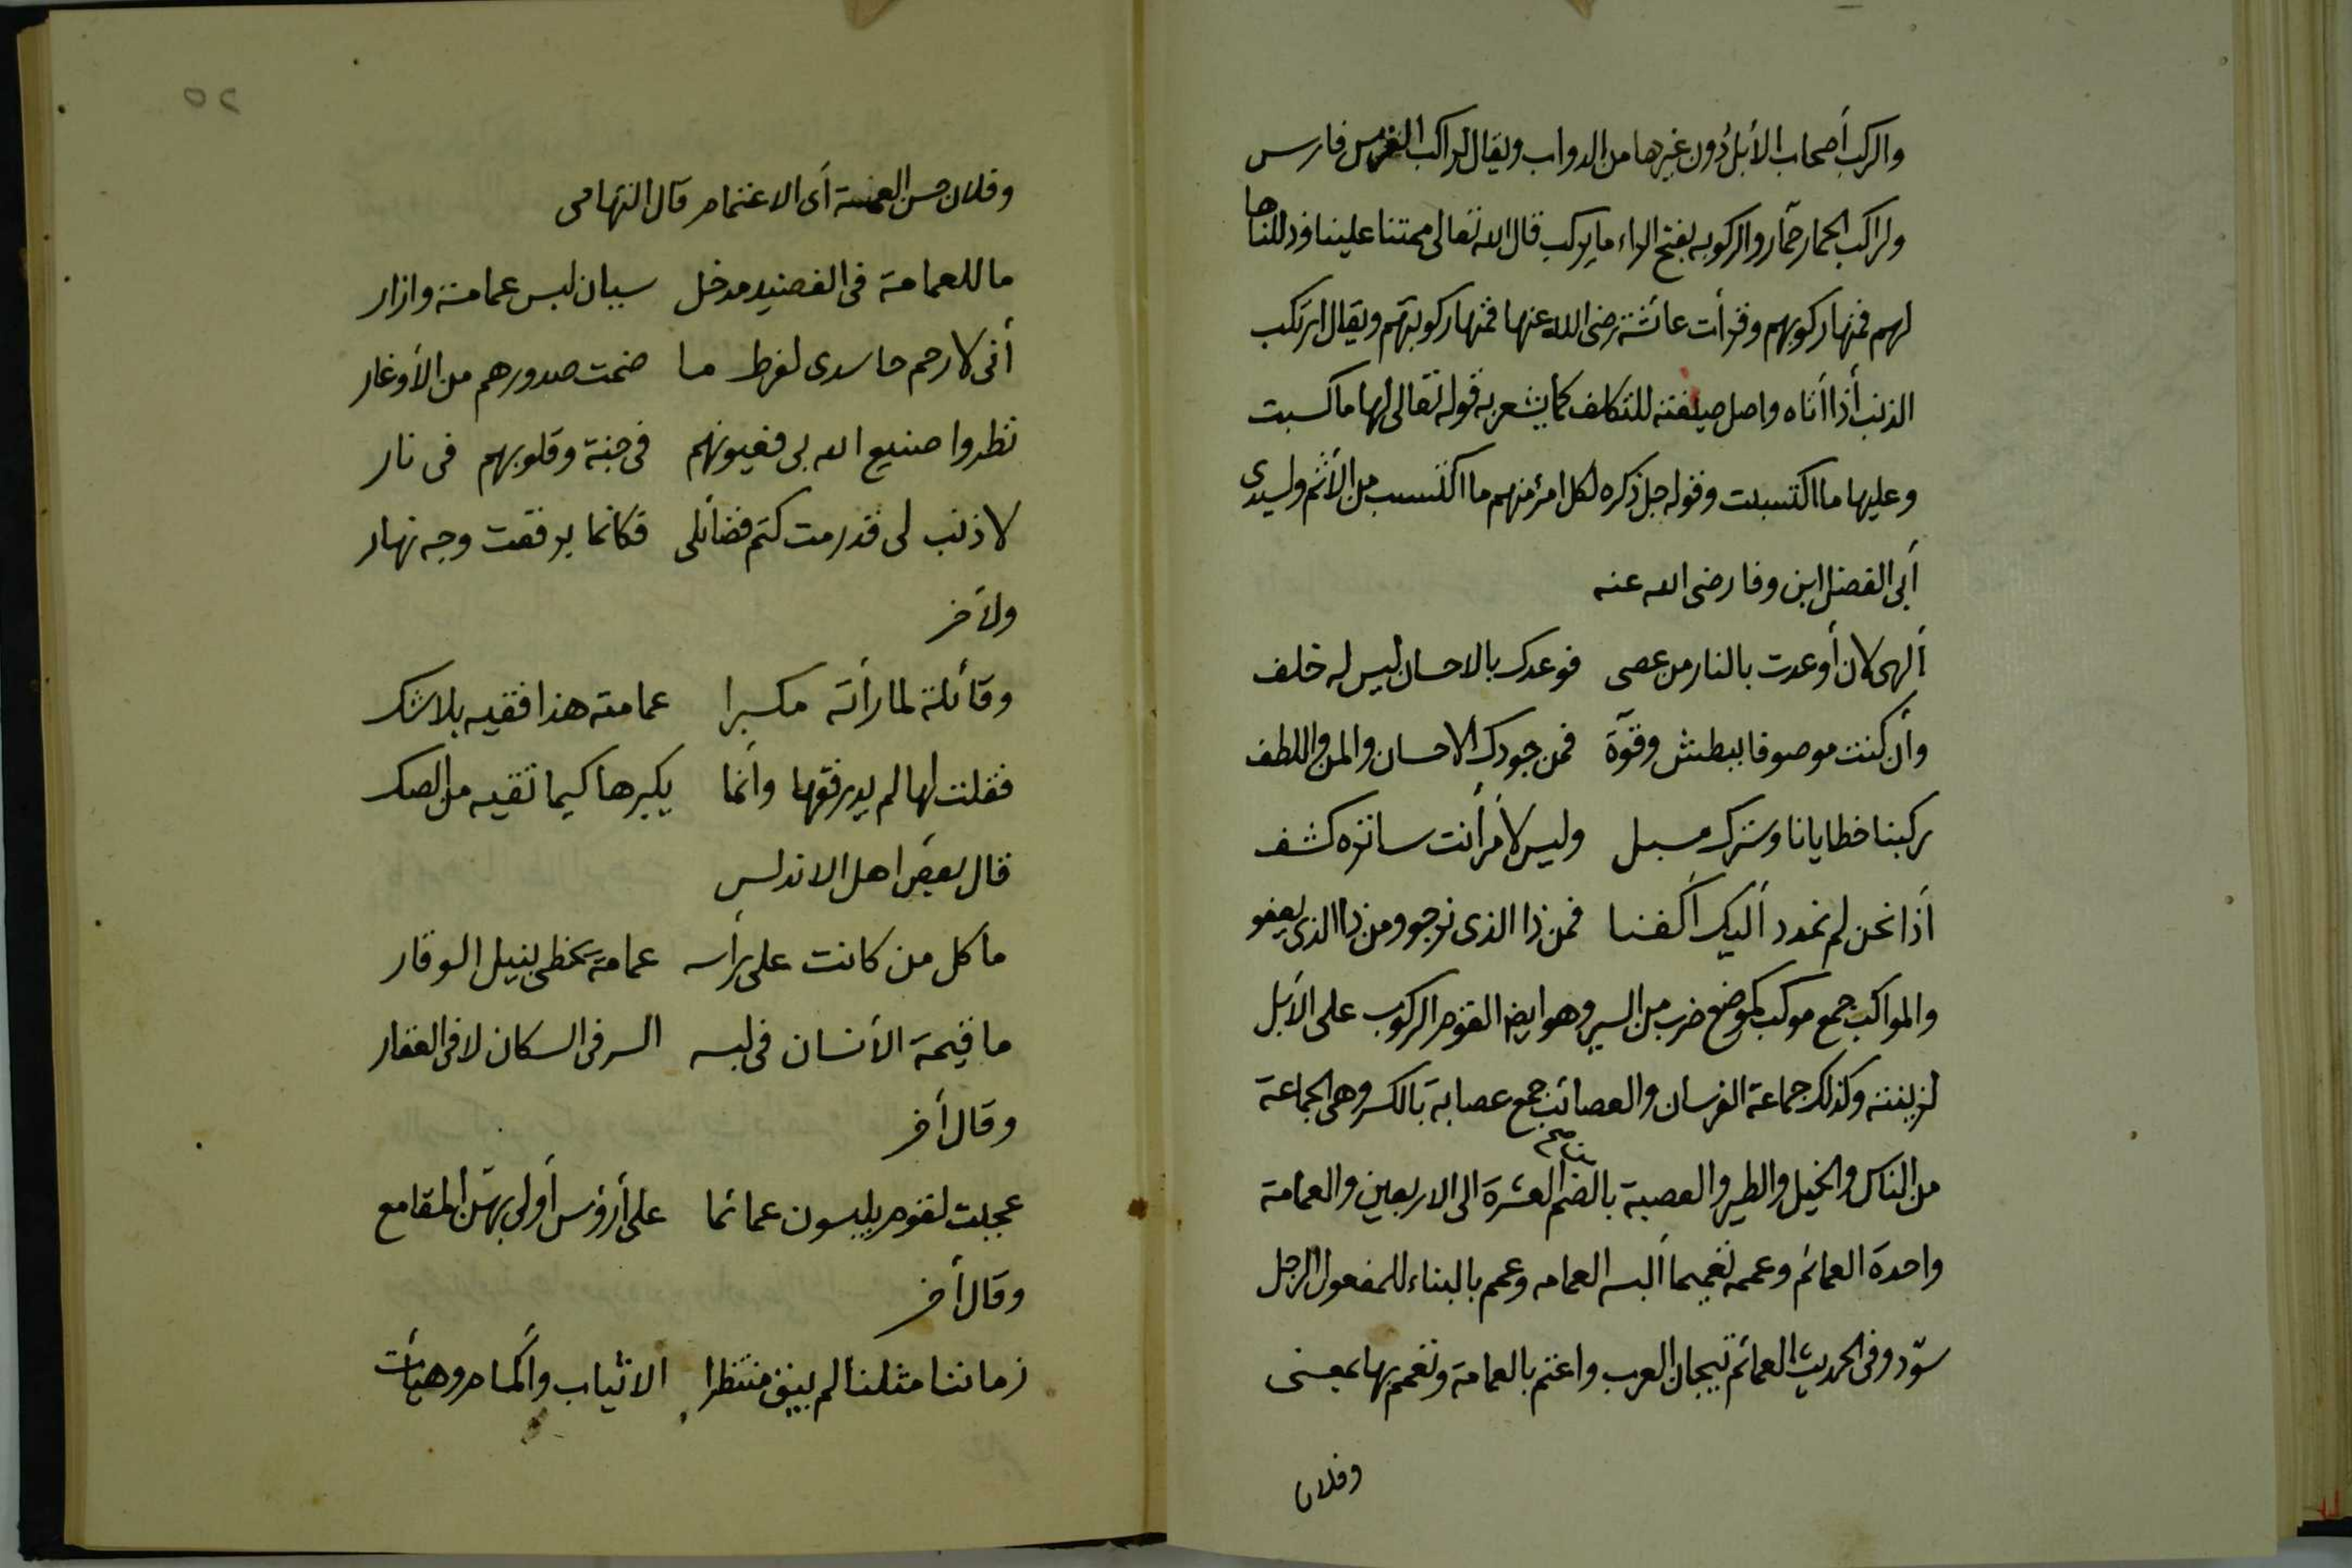 والركب أصحاب الأبل دون غيرها من الدواب ويقال لراكب الفرس فارس
ولراكب الحمار حمّار والركوبه بفتح الراء ما يركب قال الله تعالى ممتنا علينا وذللناها
لهم فمنها ركوبهم وقرأت عائشة رضى الله عنها فمنها ركوبتهم ويقال ارتكب
الذنب أذا أتاه واصل صيغته للتكلف كما يشعر به قوله تعالى لها ما كسبت
وعليها ما اكتسبت وقوله جل ذكره لكل امرئ منهم ما اكتسب من الأثم ولسيدى
أبى الفضل ابن وفا رضى الله عنه
ألهى لان أوعدت بالنار من عصى فوعدك بالاحسان ليس له خلف
وأن كنت موصوفا ببطش وقوّة فمن جودك الاحسان والمن واللطف
ركبنا خطايانا وسترك مسبل وليس لأمر أنت ساتره كشف
أذا نحن لم نمدد أليك أكفنا فمن ذا الذى نرجو ومن ذا الذى يعفو
والمواكب جمع موكب كموضع ضرب من السير وهو ايضا القوم الركوب على الأبل
لزينته وكذلك جماعة الفرسان والعصائب جمع عصابة بالكسر وهى الجماعة
من الناس والخيل والطير والعصبة بالضم العشرة الى الاربعين والعمامة
واحدة العمائم وعممه تعميما ألبسه العمامه وعمم بالبناء للمفعول الرجل
سوّد وفى الحديث العمائم تيجان العرب واعتم بالعمامة وتعمم بها بمعنى
وفلان
٢٥
وفلان حسن العمة أى الاعتمام قال التهامى
ما للعمامة فى الفضيد مدخل سيان لبس عمامة وازار
أنى لارحم حاسدى لفرط ما ضمت صدورهم من الأوغار
نظروا صنيع الله بى فعيونهم فى جنة وقلوبهم فى نار
لا ذنب لى قد رمت كتم فضائلى فكانما برقعت وجه نهار
ولأخر
وقائلة لما رأته مكبرا عمامته هذا فقيه بلا شك
فقلت لها لم يدر فقها وأنما يكبرها كيما تقيه من الصك
قال بعض اهل الاندلس
ما كل من كانت على رأسه عمامة يحظى بنيل الوقار
ما قيمة الأنسان فى لبسه السر فى السكان لا فى العقار
وقال أخر
عجبت لقوم يلبسون عمائما على أرؤس أولى بهنّ المقامع
وقال أخر
زماننا مثلنا لم يبق منتظرا الا ثياب وأكمام وهيأت